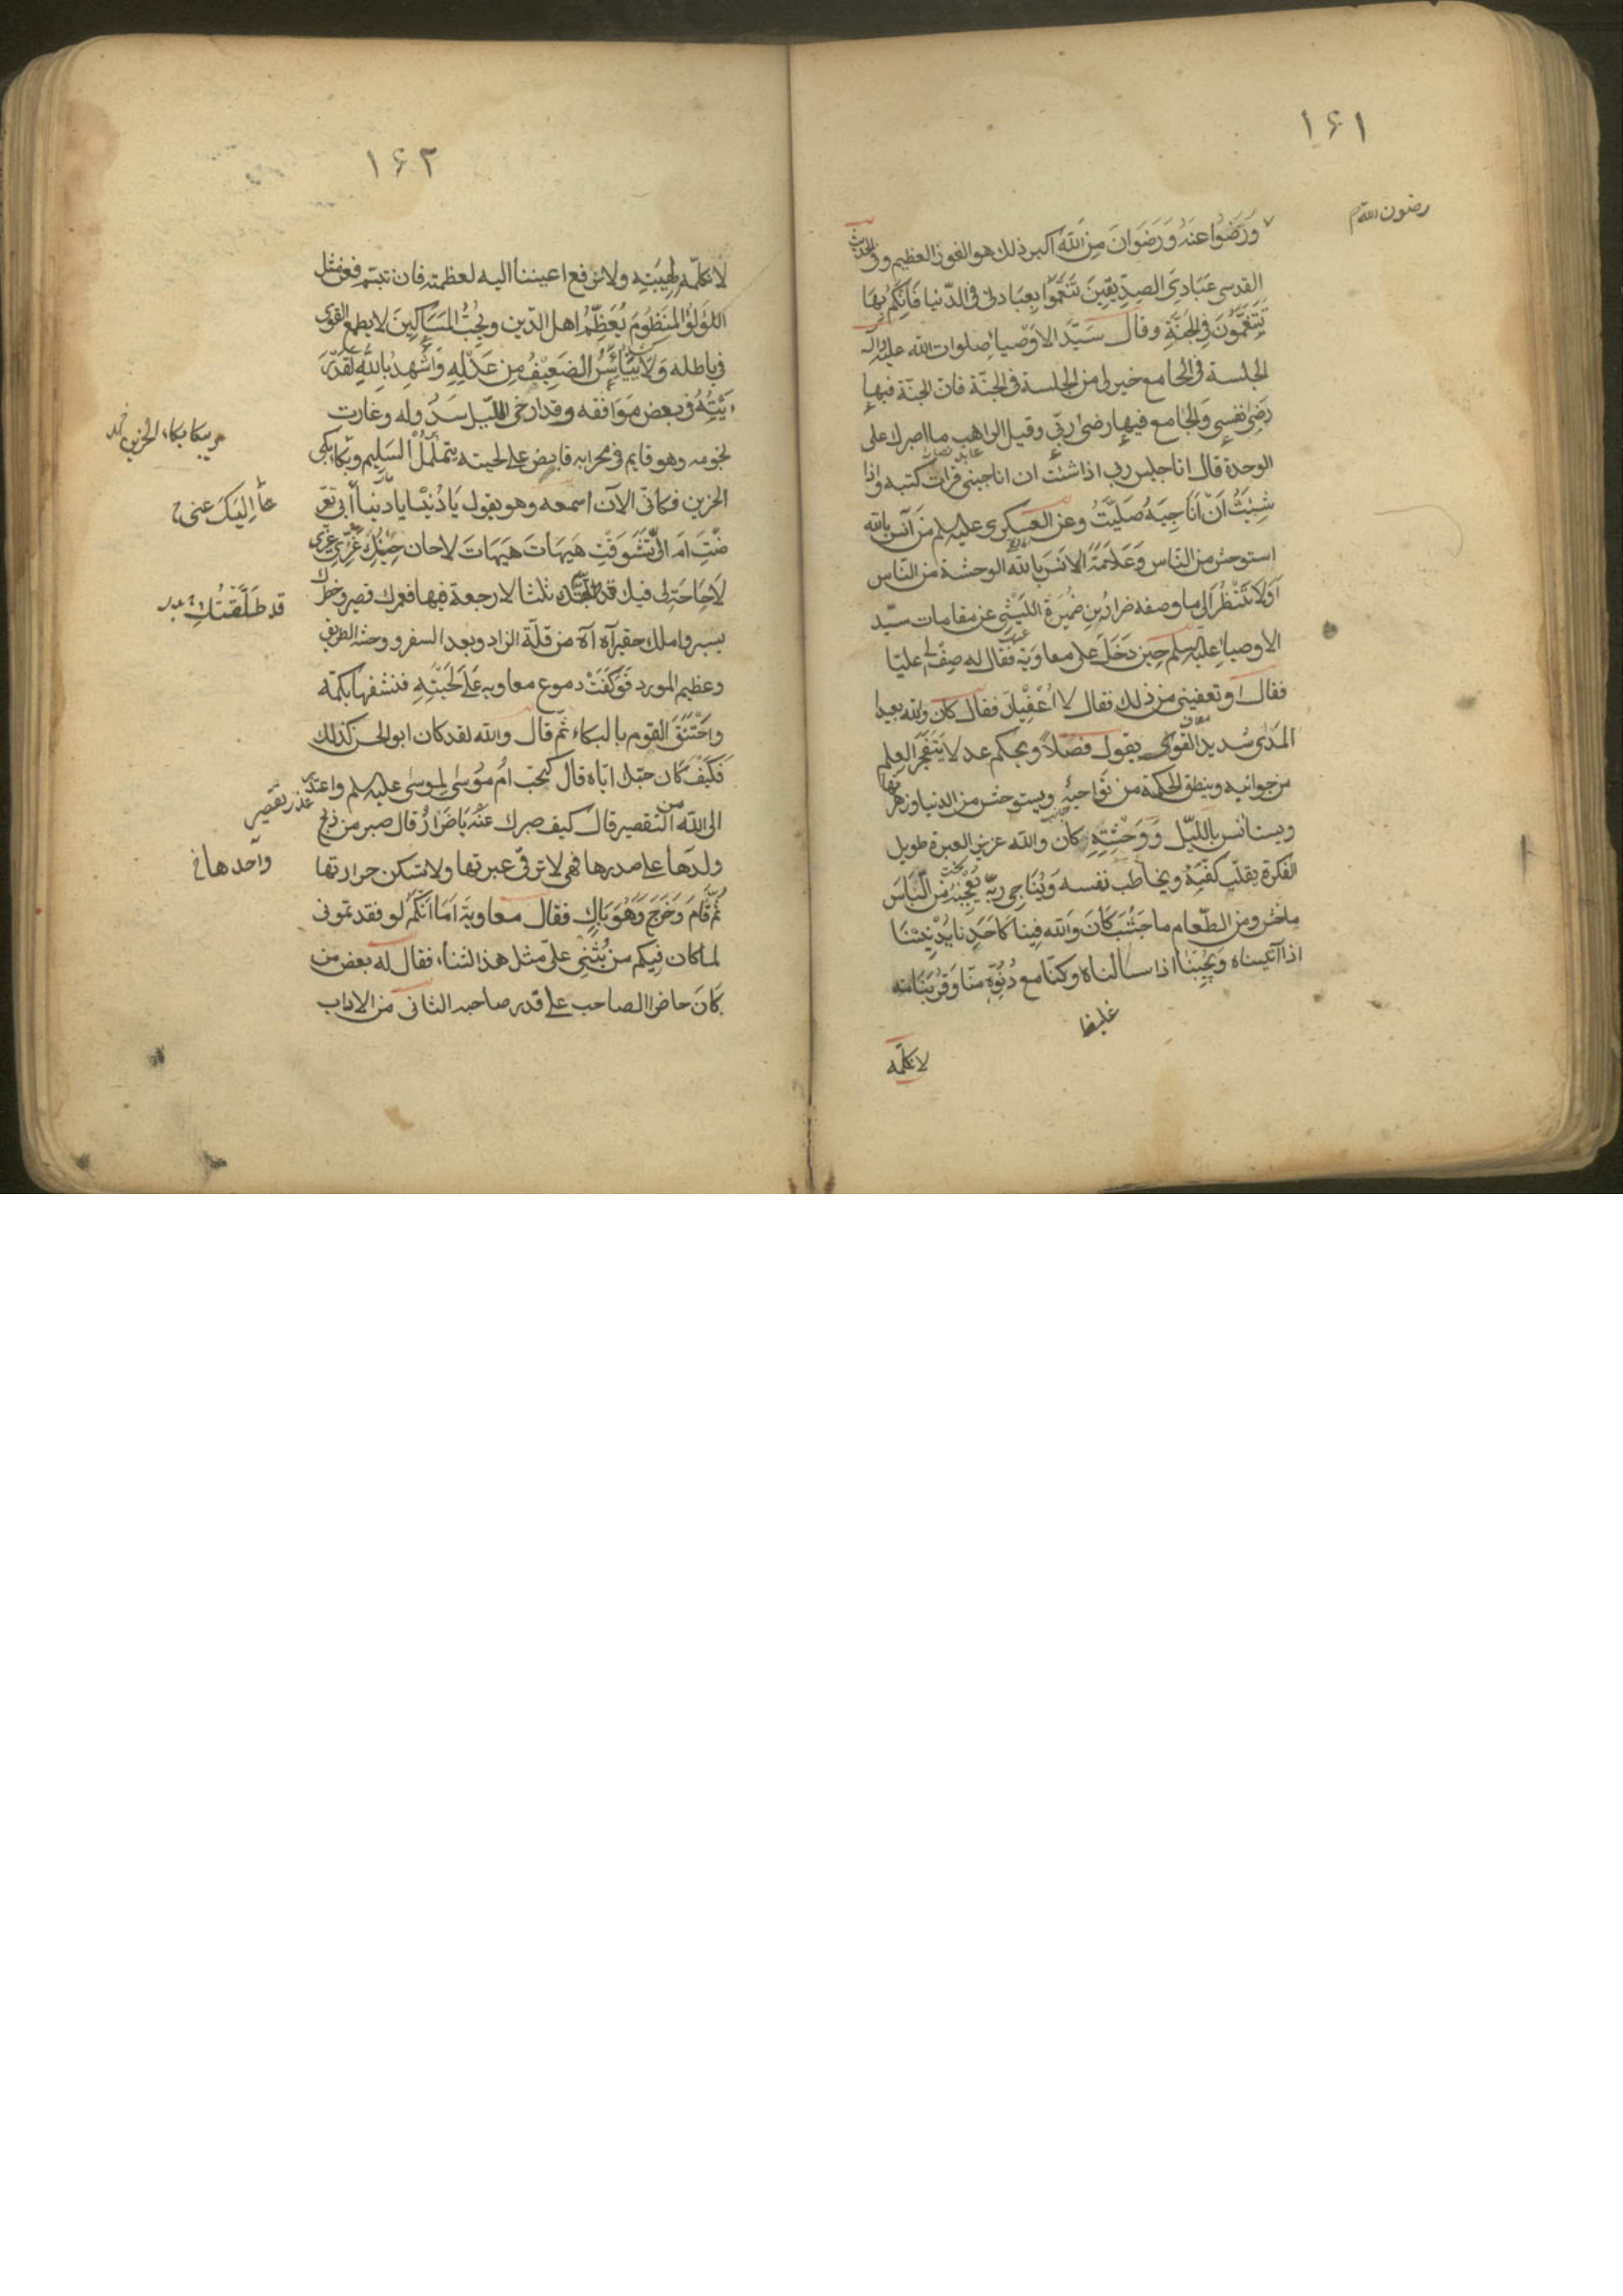 ۱۶۱
رضون الله
ورضوا عنه ورضوان من الله اكبر ذلك هو الفوز العظيم وفى الحديث
القدسى عبادى الصديقين تنعموا بعبادتى فى الدنيا فانكم بها
تتنعمون فى الجنة وقال سيد الاوصياء صلوات الله عليه واله
الجلسة فى الجامع خير لى من الجلسة فى الجنة فان الجنة فيها
رضى نفسى والجامع فيها رضى ربى وقيل الراهب ما اصبرك على
الوحدة قال انا جليس ربى اذا شئت ان يناجينى قرات كتبه واذا
شئت ان اناجيه صليت وعن العسكرى عليه سلم من آنس بالله
استوحش من الناس وعلامة الانس بالله الوحشة من الناس
اولا تنظر الى ما وصفه ضرار بن ضميرة الليثى عن مقامات سيد
الاوصياء عليه سلم حين دخل على معاوية فقال له صف لى عليا
فقال او تعفينى من ذلك فقال لا اعفيك فقال كان والله بعيد
المدى شديد القوى يقول فصلا ويحكم عدلا يتفجر العلم
من جوانبه وينطق الحكمة من نواحيه ويستوحش من الدنيا وزهرتها
ويستانس بالليل ووحشته كان والله عزيز العبرة طويل
الفكرة يقلب كفيه ويخاطب نفسه ويناجى ربه يعجبه من اللباس
ما خشن ومن الطعام ما جشب كان والله فينا كاحدنا يدنينا
اذا آتيناه ويجيبنا اذا سالناه وكنا مع دنوه منا وقربنا منه
غليظا
لا نكلمه
۱۶۲
لا نكلمه لهيبته ولا نرفع اعيننا اليه لعظمته فان تبسم فعن مثل
اللؤلؤ المنظوم يعظم اهل الدين ويحب المساكين لا يطمع القوى
فى باطله ولا ييأس الضعيف من عدله واشهد بالله لقد ر
ايته فى بعض مواقفه وقد ارخى الليل سدوله وغارت
نجومه وهو قايم فى محرابه قابض على لحيته يتململ السليم ويبكى
ويبكا بكاء الحزين
الحزين فكانى الآن اسمعه وهو يقول يا دنيا يا دنيا ابى تعر
اليك عنى
ضت ام الى تشوقت هيهات هيهات لا حان حينك غرى غيرى
لا حاجة لى فيك قد ثلثا لا رجعة فيها فعمرك قصير وخطرك
قد طلقتك
يسير واملك حقير آه آه من قلة الزاد وبعد السفر ووحشة الطريق
وعظيم المورد فوكفت دموع معاويه على لحيته فنشفها بكمه
واختنق القوم بالبكاء ثم قال والله لقد كان ابو الحسن كذلك
فكيف كان حبك اياه قال كحب ام موسى لموسى عليه سلم واعتذر
عذر تقصير
الى الله من التقصير قال كيف صبرك عنه يا ضرار قال صبر من ذبح
واحدها
ولدها على صدرها فهى لا ترقى عبرتها ولا تسكن حرارتها
ثم قام وخرج وهو باك فقال معاوية اما انكم لو فقدتمونى
لما كان فيكم من يثنى على مثل هذا الثناء فقال له بعض من
كان حاضرا الصاحب على قدر صاحبه الثانى من الاداب